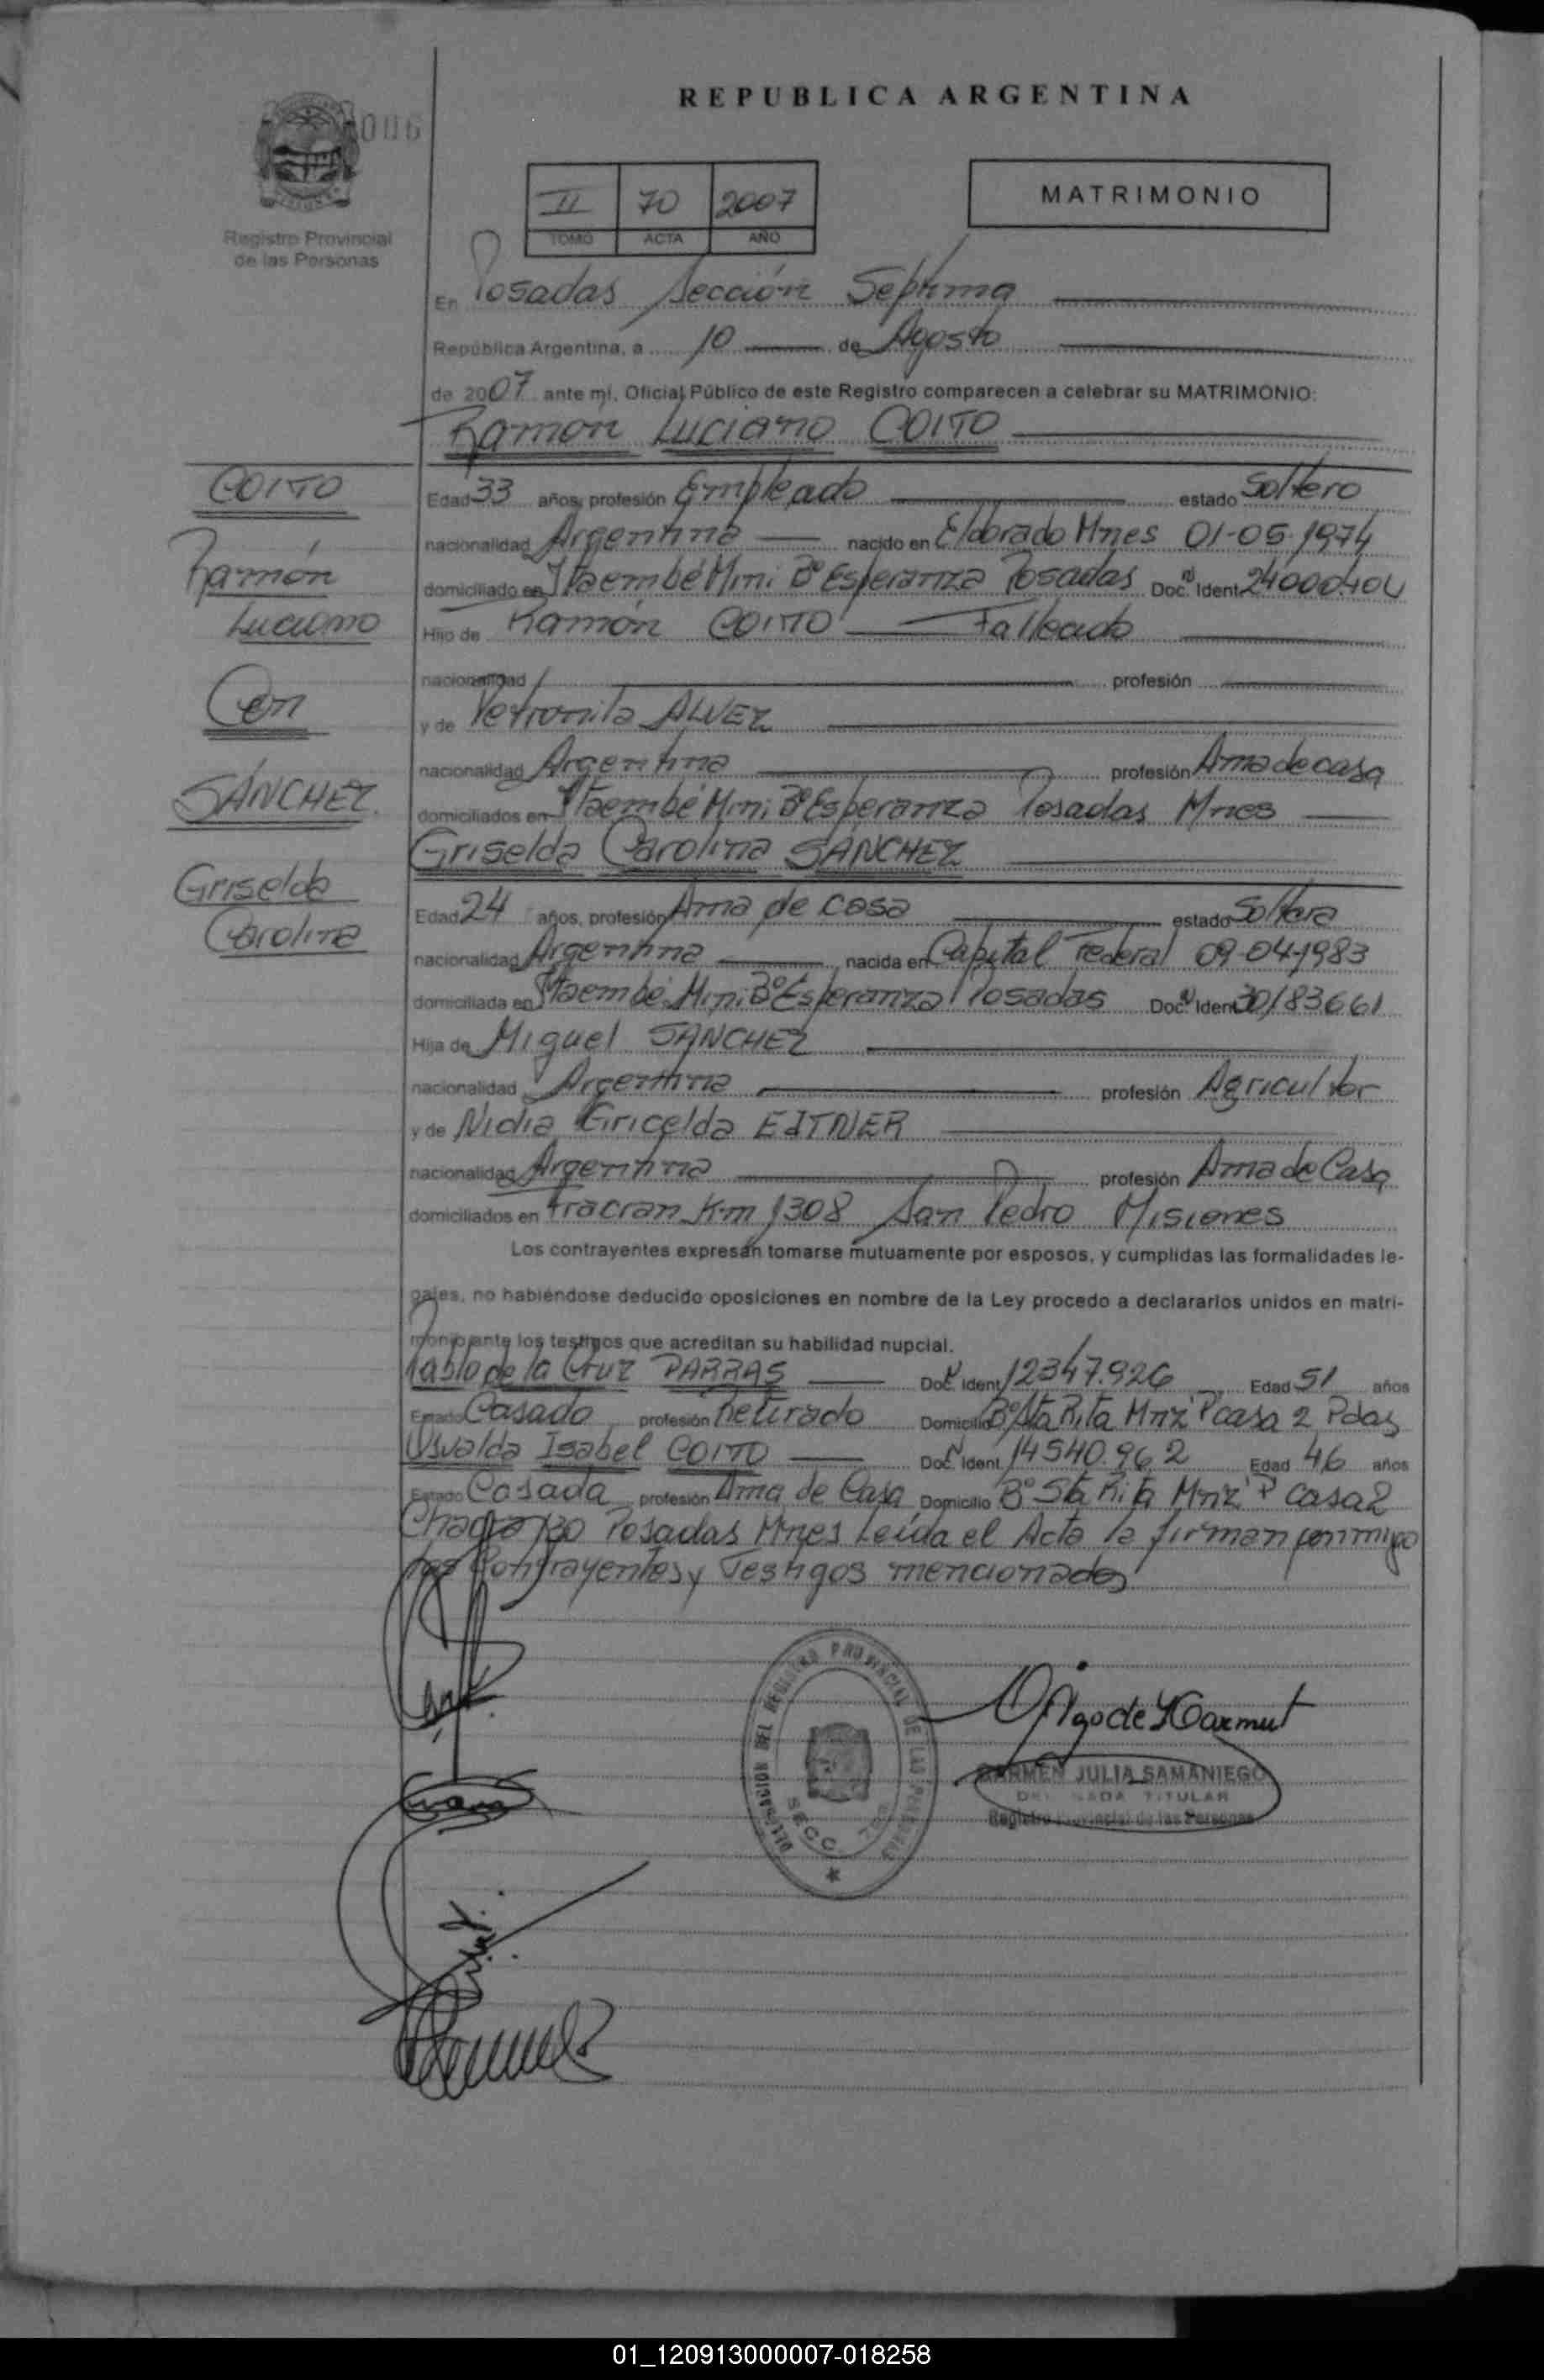 REPUBLICA ARGENTINA
006
Registro Provincial
de las Personas
II 70 2007
TOMO ACTA AÑO
MATRIMONIO
En Posadas Sección Séptima
República Argentina, a 10 de Agosto
de 2007 ante mi, Oficial Público de este Registro comparecen a celebrar su MATRIMONIO:
Ramón Luciano COITO
COITO
Ramón
Luciano
Con
SÁNCHEZ
Griselda
Carolina
Edad 33 años, profesión Empleado estado Soltero
nacionalidad Argentina nacido en Eldorado Mnes 01-05-1974
domiciliado en Itaembé Mini Bº Esperanza Posadas Doc. Ident 24000404
Hijo de Ramón COITO Fallecido
nacionalidad profesión
y de Petronila ALVEZ
nacionalidad Argentina profesión Ama de casa
domiciliados en Itaembé Mini Bº Esperanza Posadas Mnes
Griselda Carolina SÁNCHEZ
Edad 24 años, profesión Ama de casa estado Soltera
nacionalidad Argentina nacida en Capital Federal 09-04-1983
domiciliada en Itaembé Mini Bº Esperanza Posadas Doc. Ident 30183661
Hija de Miguel SANCHEZ
nacionalidad Argentina profesión Agricultor
y de Nidia Gricelda EITNER
nacionalidad Argentina profesión Ama de Casa
domiciliados en Fracran Km 1308 San Pedro Misiones
Los contrayentes expresan tomarse mutuamente por esposos, y cumplidas las formalidades le-
gales, no habiéndose deducido oposiciones en nombre de la Ley procedo a declararlos unidos en matri-
monio ante los testigos que acreditan su habilidad nupcial.
Pablo de la Cruz PARRAS Doc. Ident 12347.926 Edad 51 años
Estado Casado profesión Retirado Domicilio Bº Sta Rita Mnz P casa 2 Pdas
Osvalda Isabel COITO Doc. Ident. 14540.962 Edad 46 años
Estado Casada profesión Ama de Casa Domicilio Bº Sta Rita Mnz P casa 2
Chacra 130 Posadas Mnes Leída el Acta la firman conmigo
los Contrayentes y Testigos mencionados
DEL REGISTRO PROVINCIAL DE LAS PERSONAS
SECC. 7ma
CARMEN JULIA SAMANIEGO
DELEGADA TITULAR
Registro Provincial de las Personas
01_120913000007-018258